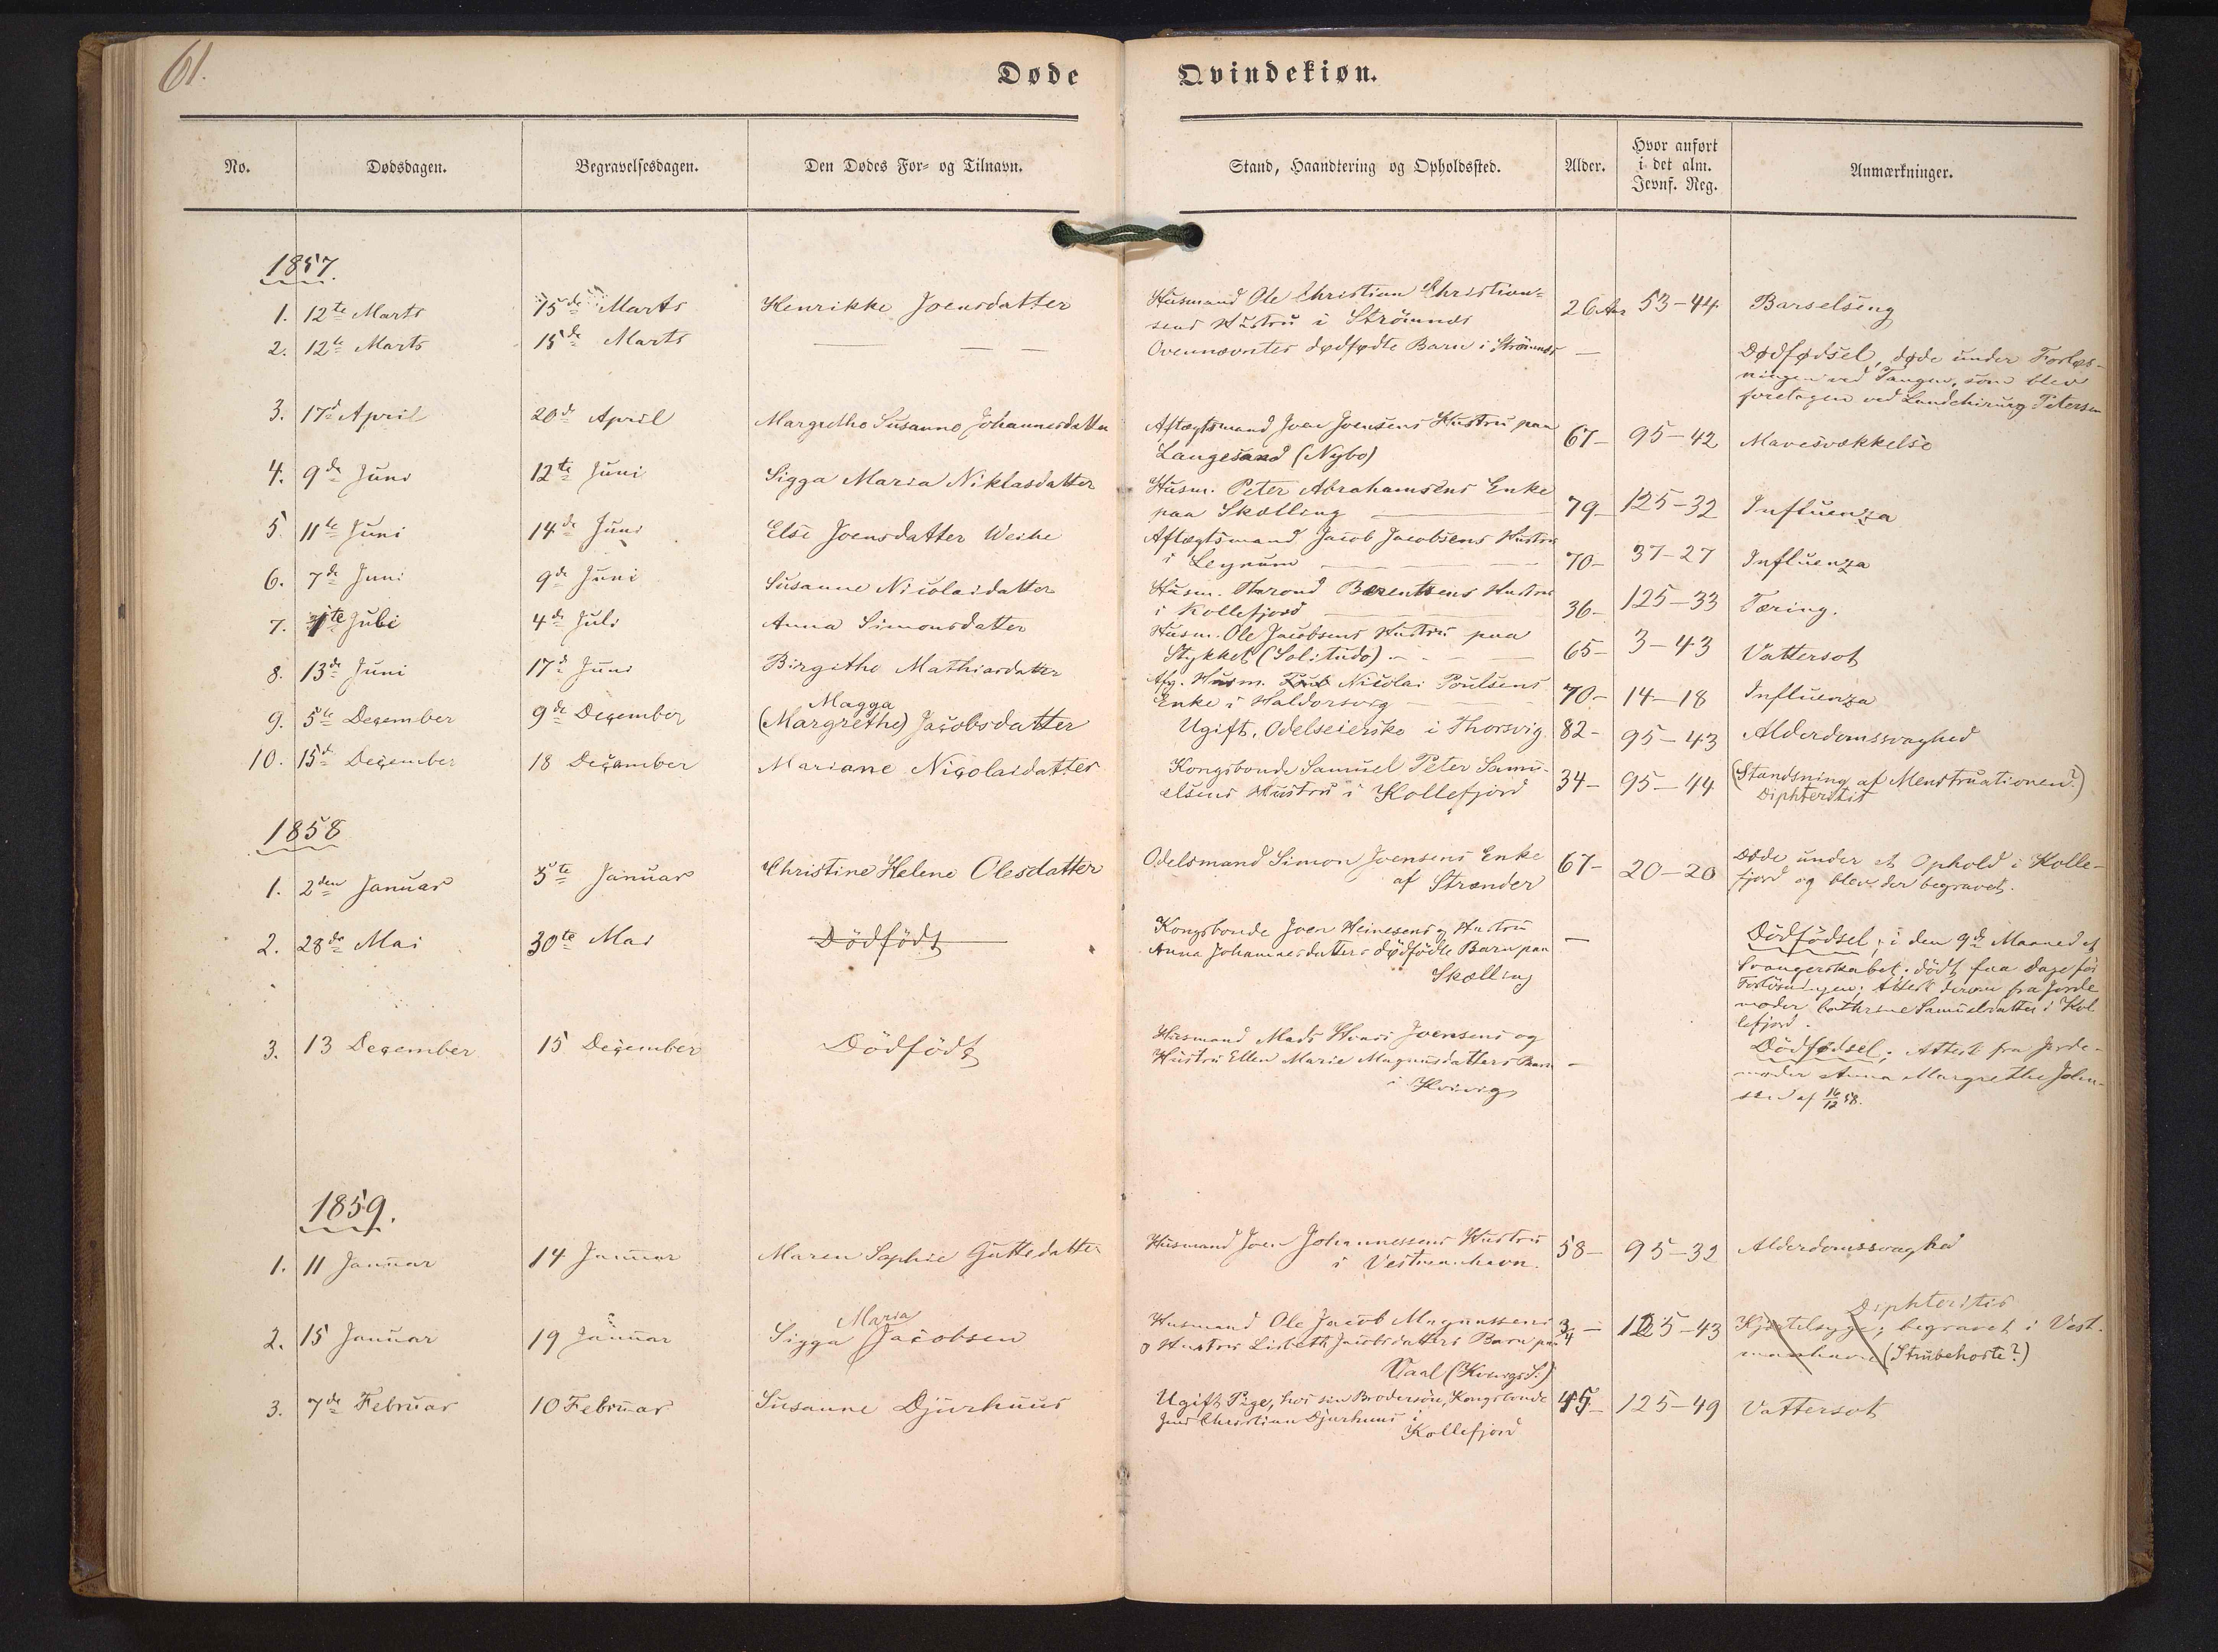 61.
Døde Qvindekiøn.
No. Dødsdagen. Begravelsesdagen. Den Dødes For- og Tilnavn. Stand, Haandtering og Opholdssted. Alder. Hvor anført i det alm. Jevnf. Reg. Anmærkninger.
1857.
1. 12te Marts 15de Marts Henrikke Joensdatter Husmand Ole Christian Christian-
sens Hustru i Strömnæs 26 Aar 53-44 Barselseng
2. 12te Marts 15de Marts — — — Ovennævntes dødfødte Barn i Strömnæs — Dødfødsel, døde under Forløs-
ningen ved Tangen, som blev
foretagen ved Landchirurg Petersen
3. 17de April 20de April Margrethe Susanne Johannesdatter Aftægtsmand Joen Joensens Hustru paa
Langesand (Nybo) 67- 95-42 Mavesvækkelse
4. 9de Juni 12te Juni Sigga Maria Niklasdatter Husm. Peter Abrahamsens Enke
paa Skælling 79- 125-32 Influenza
5. 11te Juni 14de Juni Else Joensdatter Weihe Aftægtsmand Jacob Jacobsens Hustru
i Leynum 70- 37-27 Influenza
6. 7de Juni 9de Juni Susanne Nicolaidatter Husm. Thrond Berentsens Hustru
i Kollefjord 36- 125-33 Tæring.
7. 1te Juli 4de Juli Anna Simonsdatter Husm. Ole Jacobsens Hustru paa
Stykket (Solitudo) 65- 3-43 Vattersot
8. 13de Juni 17de Juni Birgithe Mathiasdatter Afg. Husm. Nicolai Poulsens
Enke i Haldorsvig 70- 14-18 Influenza
Magga
9. 5te December 9de December (Margrethe) Jacobsdatter Ugift, Odelseierske i Thorsvig 82- 95-43 Alderdomssvaghed
10. 15de December 18 December Mariane Nicolaidatter Kongsbonde Samuel Peter Samu-
elsens Hustru i Kollefjord 34- 95-44 (Standsning af Menstruationen?)
Diphteritis
1858
1. 2den Januar 5te Januar Christine Helene Olesdatter Odelsmand Simon Joensens Enke
af Strænder 67- 20-20 Døde under et Ophold i Kolle-
fjord og blev der begravet.
2. 28de Mai 30te Mai Dödfödt Kongsbonde Joen Heinesens og Hustru
Anna Johannesdatters dödfödte Barn paa
Skælling — Dödfödsel, i den 9de Maaned af
Svangerskabet, dödt faa Dage för
Forlösningen; Attest derom fra Jorde-
moder Cathrine Samuelsdatter i Kol-
lefjord.
3. 13 December 15 December Dödfödt Husmand Mads Joensens og
Hustru Ellen Marie Magnusdatters Barn
i Kvivig — Dödfødsel; Attest fra Jorde-
moder Anna Margrethe Joen-
sen af 16/12 58.
1859.
1. 11 Januar 14 Januar Maren Sophie Guttesdatter Husmand Joen Johannessens Hustru
i Vestmanhavn. 58- 95-32 Alderdomssvaghed
Maria Diphteritis
2. 15 Januar 19 Januar Sigga Jacobsen Husmand Ole Jacob Magnussens
og Hustru Lisbeth Jacobsdatters Barn paa
Vaal (Kongs J.) 3/4 - 125-43 Kjertelsyge; begravet i Vest-
manhavn (Strubehoste?)
3. 7de Februar 10 Februar Susanne Djurhuus Ugift Pige, hos sin Brodersön, Kongsbonde
Jens Christian Djurhuus i
Kollefjord 45- 125-49 Vattersot